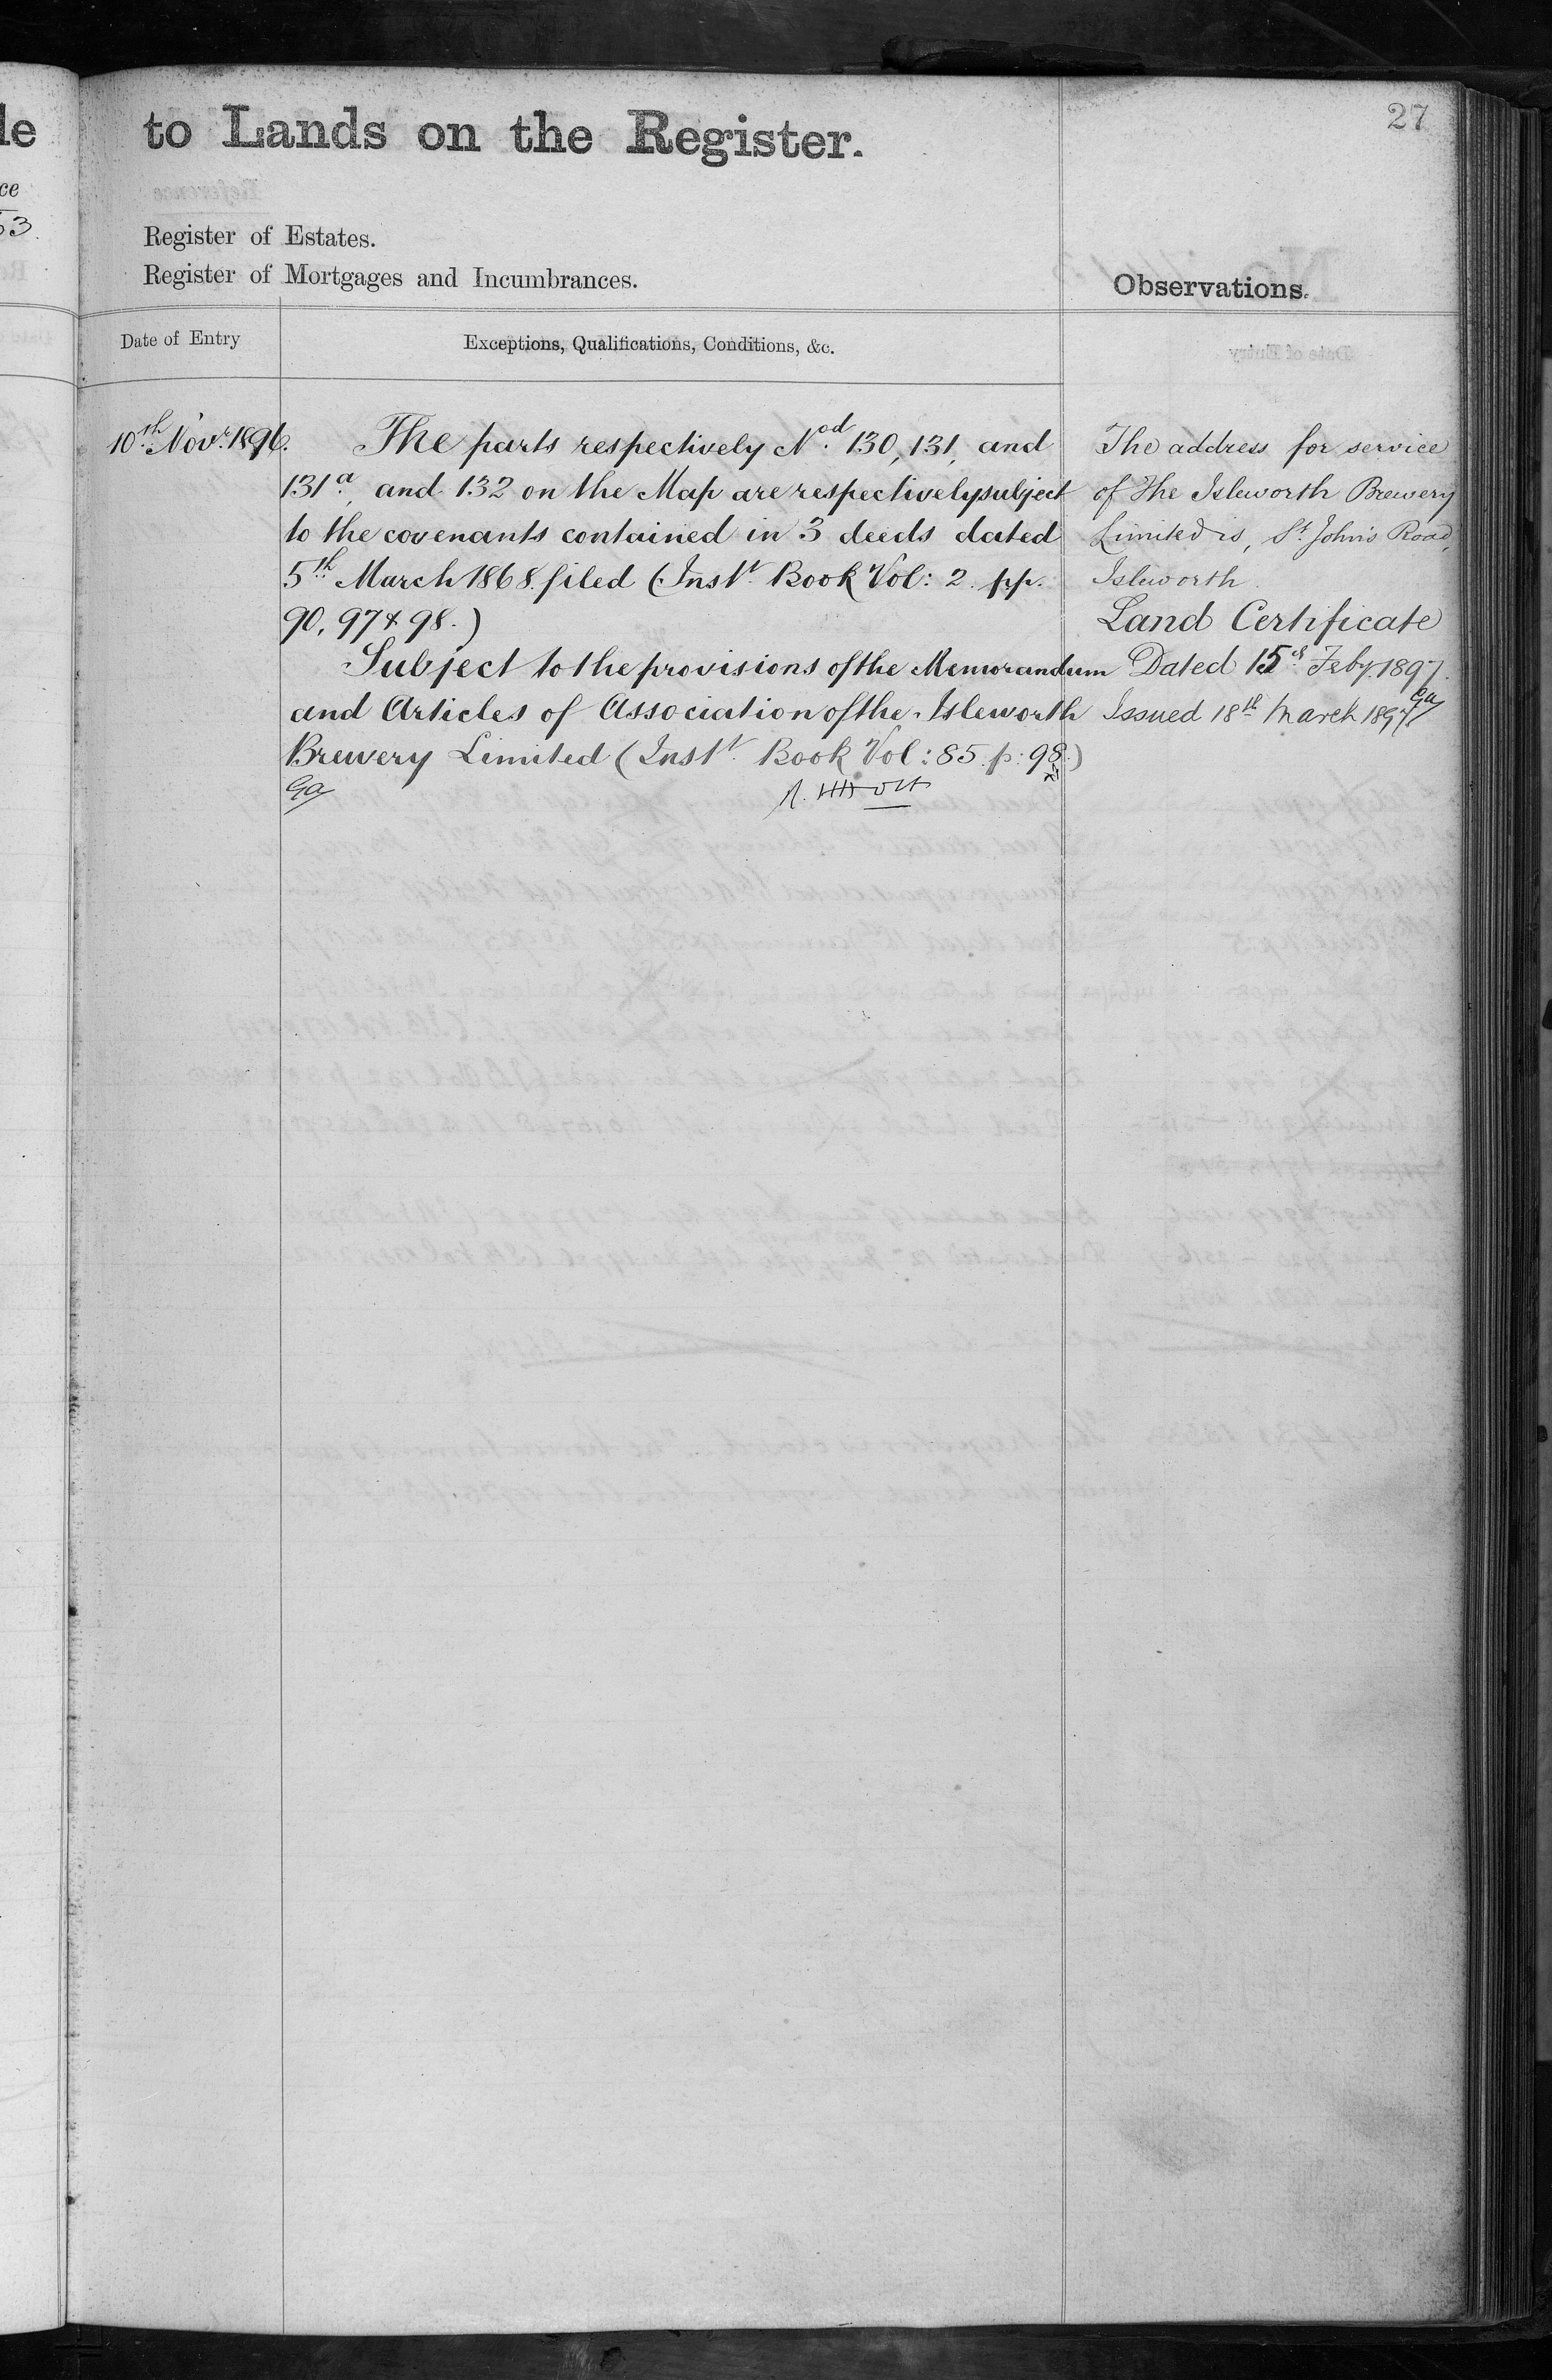 27
to Lands on the Register.
Register of Estates.
Register of Mortgages and Incumbrances.
Observations.
Date of Entry
Exceptions, Qualifications, Conditions, &c.
10th Novr. 1896.
The parts respectively Nod. 130, 131, and
131a, and 132 on the Map are respectively subject
to the covenants contained in 3 deeds dated
5th March 1868. filed (Instt. Book Vol: 2. pp.
90, 97 & 98.)
Subject to the provisions of the Memorandum
and Articles of Association of the Isleworth
Brewery Limited (Instt. Book Vol: 85. p: 98.)
The address for service
of The Isleworth Brewery
Limited is, St. John's Road,
Isleworth.
Land Certificate
Dated 15th Feby. 1897.
Issued 18th March 1897